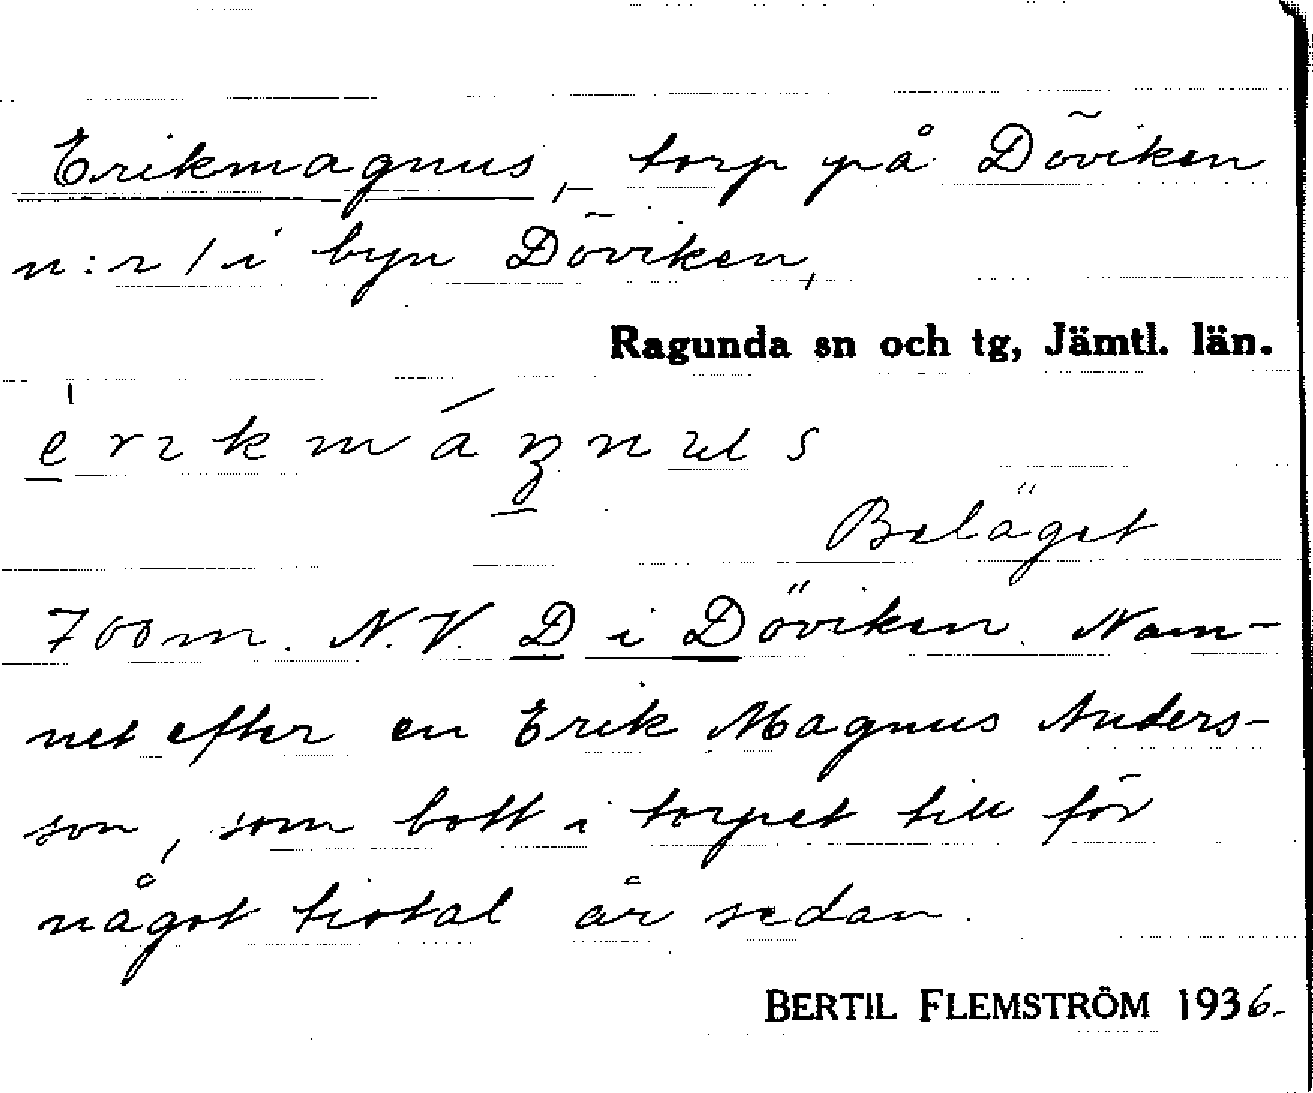 Erikmagnus, torp på Döviken
n:r 1 i byn Döviken,
Ragunda sn och tg, Jämtl. län.
èrıkmáŋnus
Beläget
700 m. N.V. D i Döviken. Nam-
net efter en Erik Magnus Anders-
son, som bott i torpet till för
något tiotal år sedan.
BERTIL FLEMSTRÖM 1936.